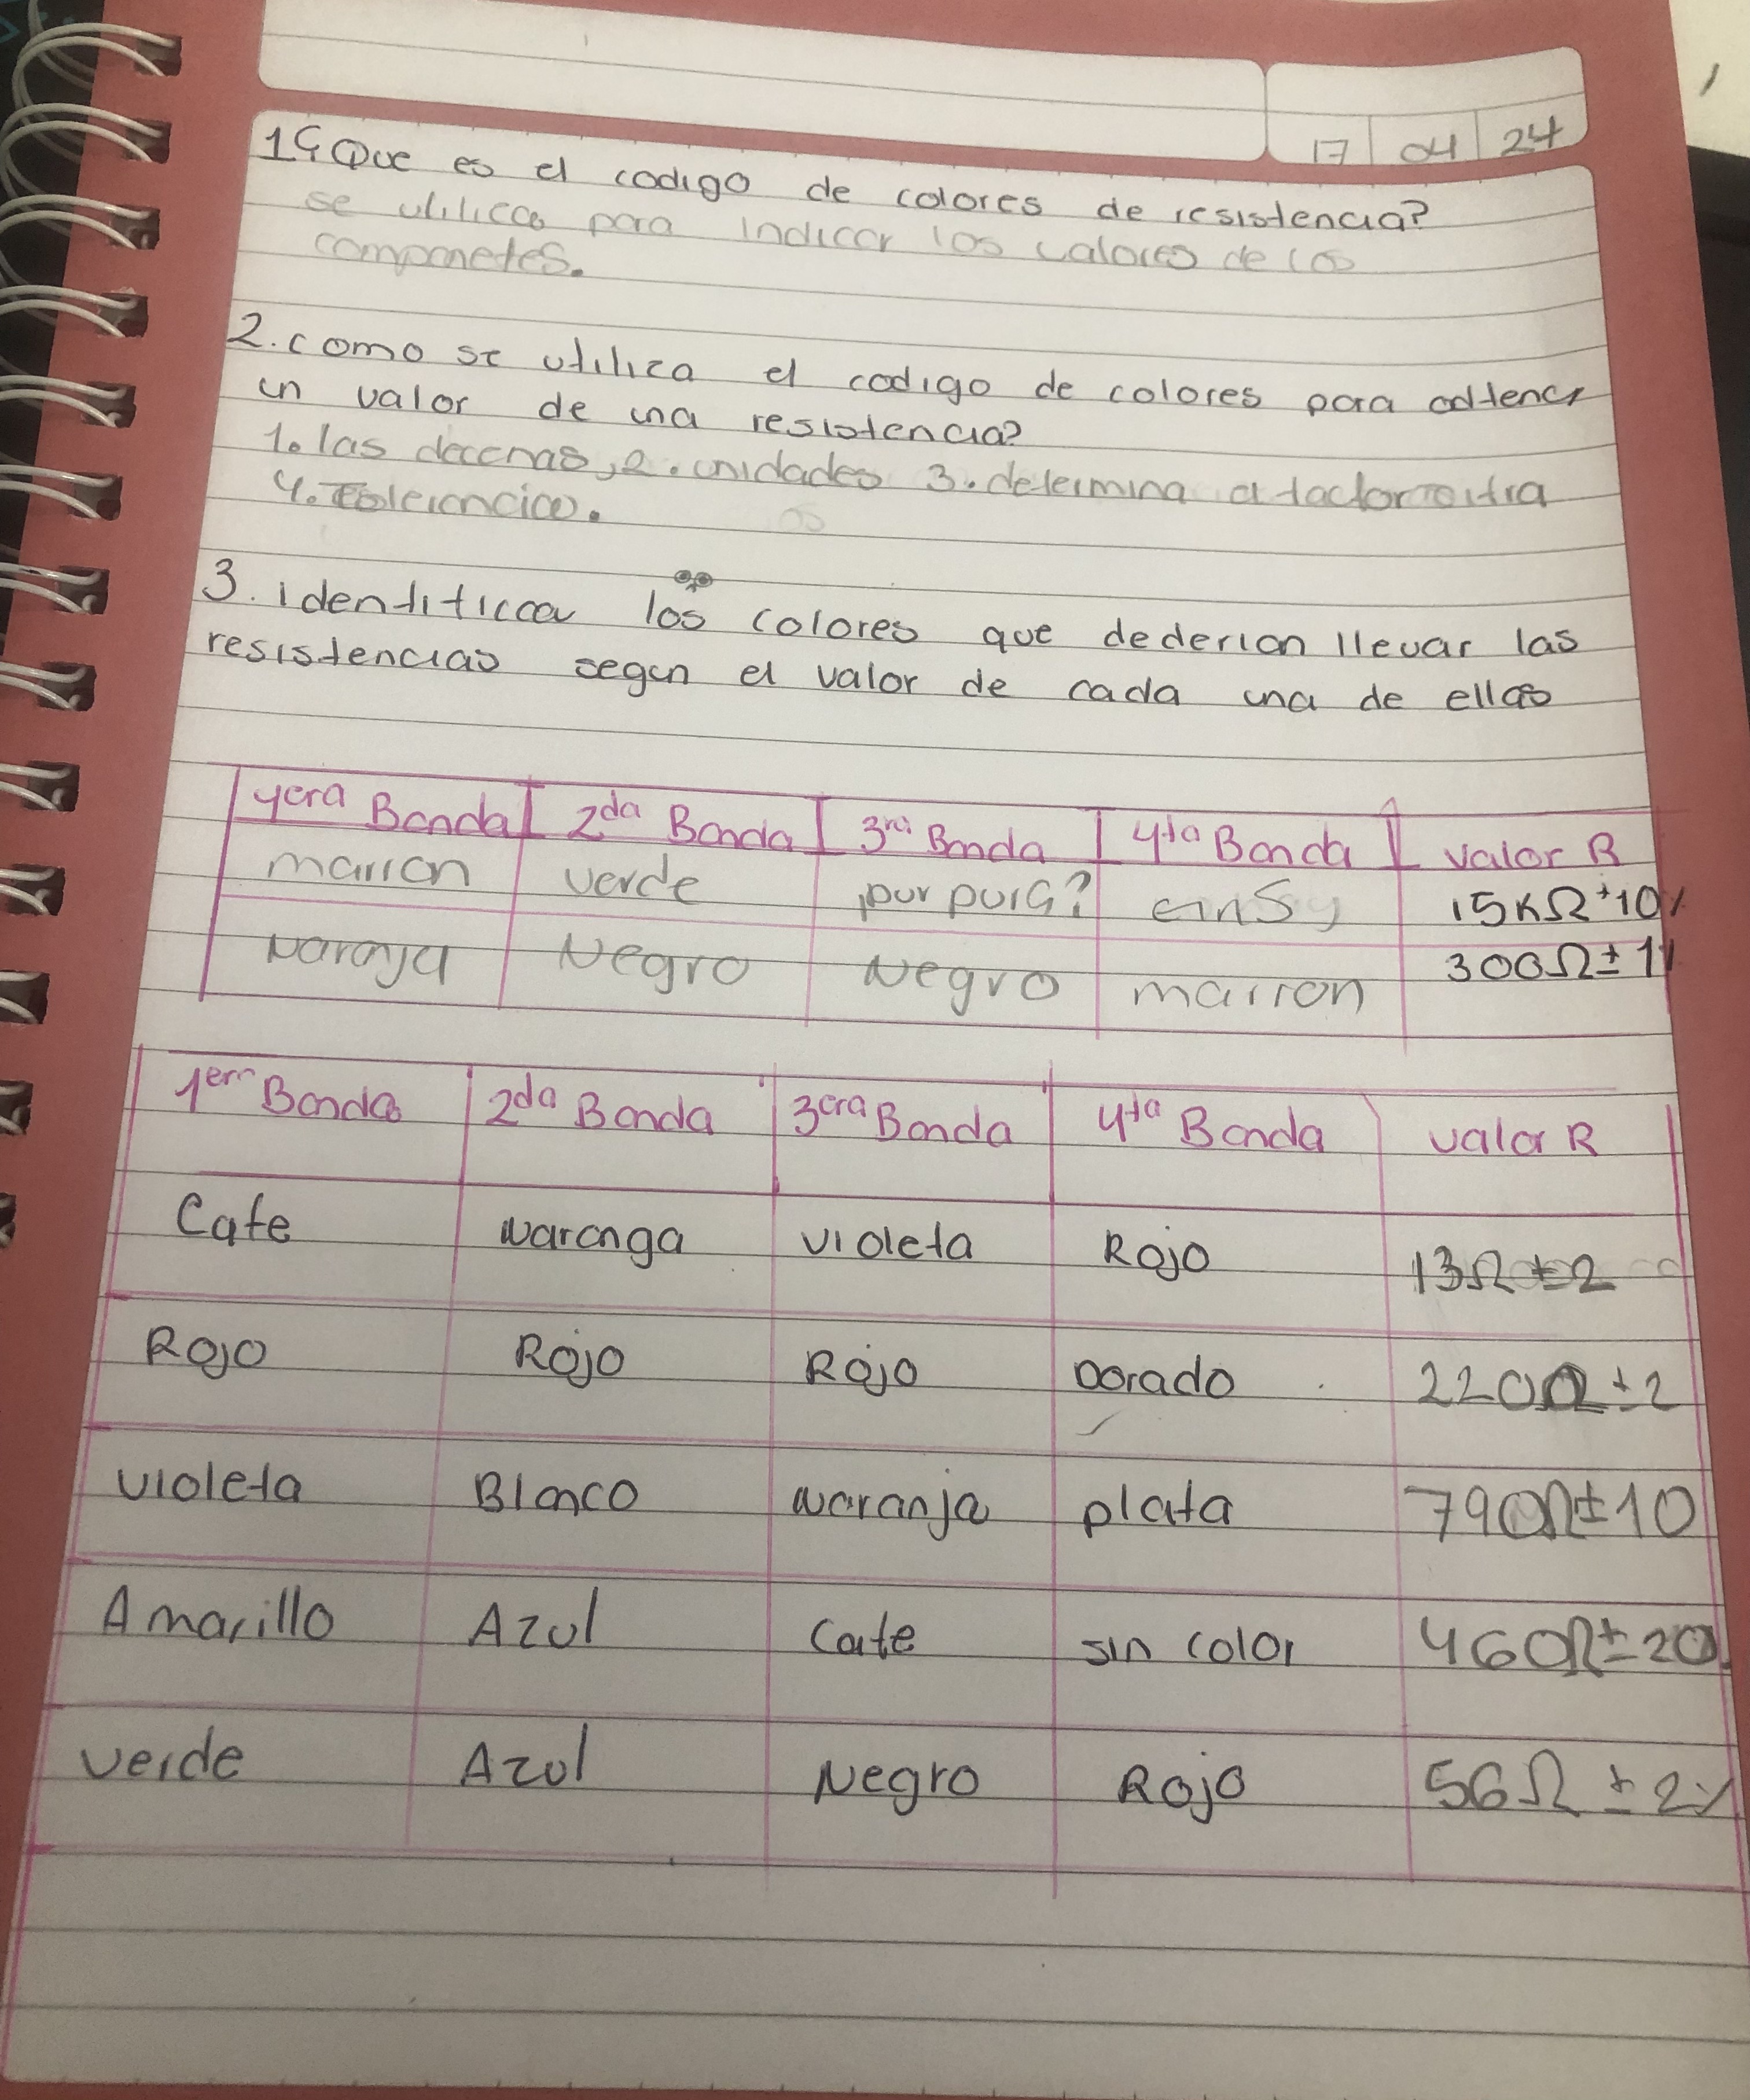 17 04 24
1 ¿Que es el codigo de colores de resistencia?
se utilica para indicar los valores de los
componetes.
2. como se utilica el codigo de colores para
un valor de una resistencia?
1. las decenas, 2. unidades 3. determina el
4. Tolerancia.
3. identificar los colores que dederian llevar las
resistencias segun el valor de cada una de ellas
1era Banda 2da Banda 3ra Banda 4ta Banda valor R
marron verde 15KΩ ± 10%
Naranja Negro Negro marron 300Ω ± 1%
1era Banda 2da Banda 3era Banda 4ta Banda valor R
Cafe Naranga violeta Rojo 13Ω ± 2
Rojo Rojo Rojo Dorado 220Ω ± 2
violeta Blanco Naranja plata 790Ω ± 10
Amarillo Azul Cafe sin color 460Ω ± 20
verde Azul Negro Rojo 56Ω ± 2%